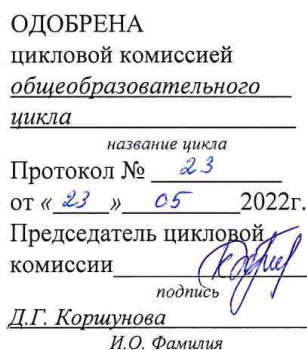 ОДОБРЕНА
цикловой комиссией
общеобразовательного
цикла
название цикла
Протокол № 23
от « 23 » 05 2022г.
Председатель цикловой
комиссии
подпись
Д.Г. Коршунова
И.О. Фамилия